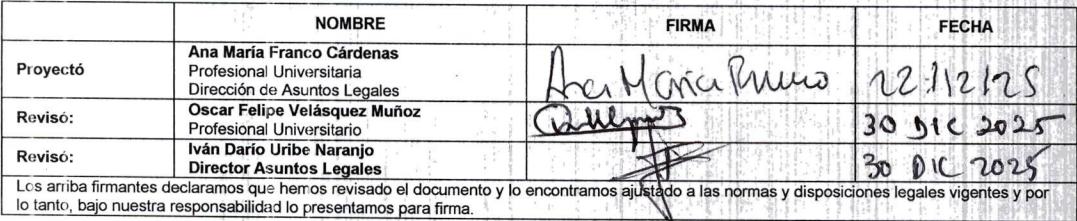 NOMBRE FIRMA FECHA
Proyectó
Ana María Franco Cárdenas
Profesional Universitaria
Dirección de Asuntos Legales
Ana María 22/12/25
Revisó:
Oscar Felipe Velásquez Muñoz
Profesional Universitario
30 DIC 2025
Revisó:
Iván Darío Uribe Naranjo
Director Asuntos Legales
30 DIC 2025
Los arriba firmantes declaramos que hemos revisado el documento y lo encontramos ajustado a las normas y disposiciones legales vigentes y por
lo tanto, bajo nuestra responsabilidad lo presentamos para firma.